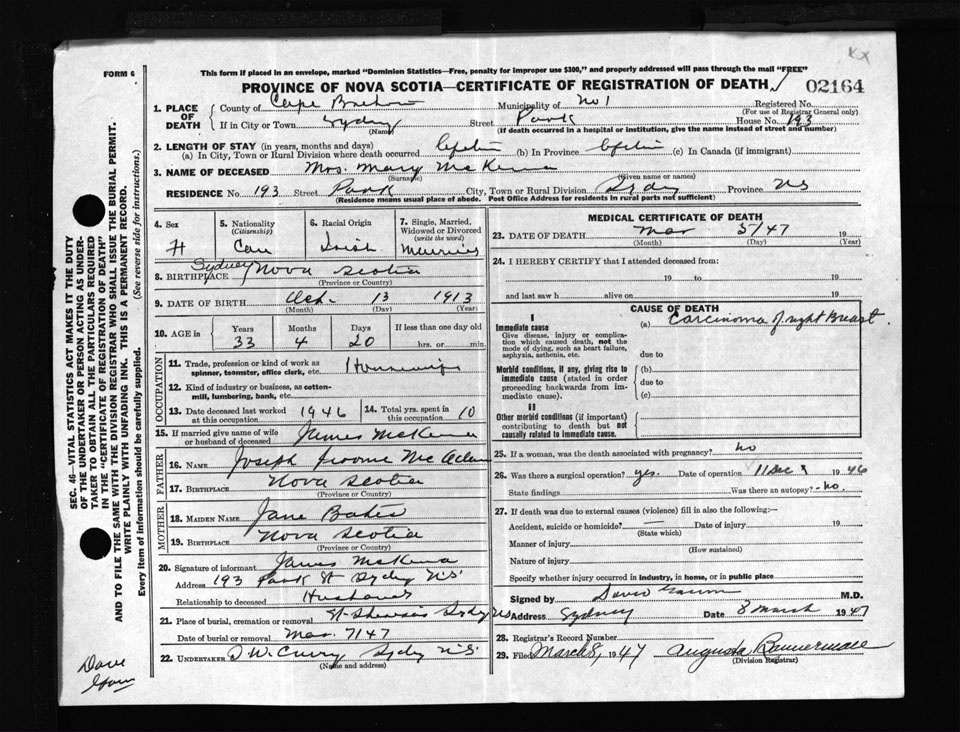 Kx
FORM 6
This form if placed in an envelope, marked "Dominion Statistics—Free, penalty for improper use $300," and properly addressed will pass through the mail "FREE"
PROVINCE OF NOVA SCOTIA—CERTIFICATE OF REGISTRATION OF DEATH 02164
1. PLACE OF DEATH { County of Cape Breton Municipality of No 1 Registered No.
(For use of Registrar General only)
If in City or Town Sydney Street Park House No. 193
(Name) (If death occurred in a hospital or institution, give the name instead of street and number)
2. LENGTH OF STAY (in years, months and days)
(a) In City, Town or Rural Division where death occurred Lifetime (b) In Province Lifetime (c) In Canada (if immigrant)
3. NAME OF DECEASED Mrs. Mary McKenna
(Surname) (Given name or names)
RESIDENCE No. 193 Street Park City, Town or Rural Division Sydney Province NS
(Residence means usual place of abode. Post Office Address for residents in rural parts not sufficient)
4. Sex 5. Nationality (Citizenship) 6. Racial Origin 7. Single, Married, Widowed or Divorced (write the word)
Can Irish Married
8. BIRTHPLACE Sydney Nova Scotia
(Province or Country)
9. DATE OF BIRTH Oct. 13 1913
(Month) (Day) (Year)
10. AGE in Years Months Days If less than one day old
33 4 20 hrs. or min.
OCCUPATION
11. Trade, profession or kind of work as spinner, teamster, office clerk, etc. Housewife
12. Kind of industry or business, as cotton-mill, lumbering, bank, etc.
13. Date deceased last worked at this occupation 1946 14. Total yrs. spent in this occupation 10
15. If married give name of wife or husband of deceased James McKenna
FATHER
16. NAME Joseph Jerome McAdam
17. BIRTHPLACE Nova Scotia
(Province or Country)
MOTHER
18. MAIDEN NAME Jane
19. BIRTHPLACE Nova Scotia
(Province or Country)
20. Signature of informant James McKenna
Address 193 Park St Sydney N.S.
Relationship to deceased Husband
21. Place of burial, cremation or removal Sydney NS
Date of burial or removal Mar. 7/47
22. UNDERTAKER Curry Sydney N.S.
(Name and address)
MEDICAL CERTIFICATE OF DEATH
23. DATE OF DEATH Mar 5/47 19
(Month) (Day) (Year)
24. I HEREBY CERTIFY that I attended deceased from:
19 to 19
and last saw h alive on 19
CAUSE OF DEATH
I
Immediate cause (a) Carcinoma of right Breast.
Give disease, injury or complication which caused death, not the mode of dying, such as heart failure, asphyxia, asthenia, etc. due to
Morbid conditions, if any, giving rise to immediate cause (stated in order proceeding backwards from immediate cause). (b)
due to
(c)
II
Other morbid conditions (if important) contributing to death but not causally related to immediate cause.
25. If a woman, was the death associated with pregnancy? No
26. Was there a surgical operation? yes. Date of operation 11 Dec 1946
State findings Was there an autopsy? - no.
27. If death was due to external causes (violence) fill in also the following:—
Accident, suicide or homicide? — Date of injury 19
(State which)
Manner of injury
(How sustained)
Nature of injury
Specify whether injury occurred in industry, in home, or in public place
Signed by David M.D.
Address Sydney Date 8 March 1947
28. Registrar's Record Number
29. Filed March 8, 1947 Augusta Bannerman
(Division Registrar)
SEC. 46—VITAL STATISTICS ACT MAKES IT THE DUTY
OF THE UNDERTAKER OR PERSON ACTING AS UNDER-
TAKER TO OBTAIN ALL THE PARTICULARS REQUIRED
IN THE "CERTIFICATE OF REGISTRATION OF DEATH"
AND TO FILE THE SAME WITH THE DIVISION REGISTRAR WHO SHALL ISSUE THE BURIAL PERMIT.
WRITE PLAINLY WITH UNFADING INK. THIS IS A PERMANENT RECORD.
Every item of information should be carefully supplied. (See reverse side for instructions.)
Dave